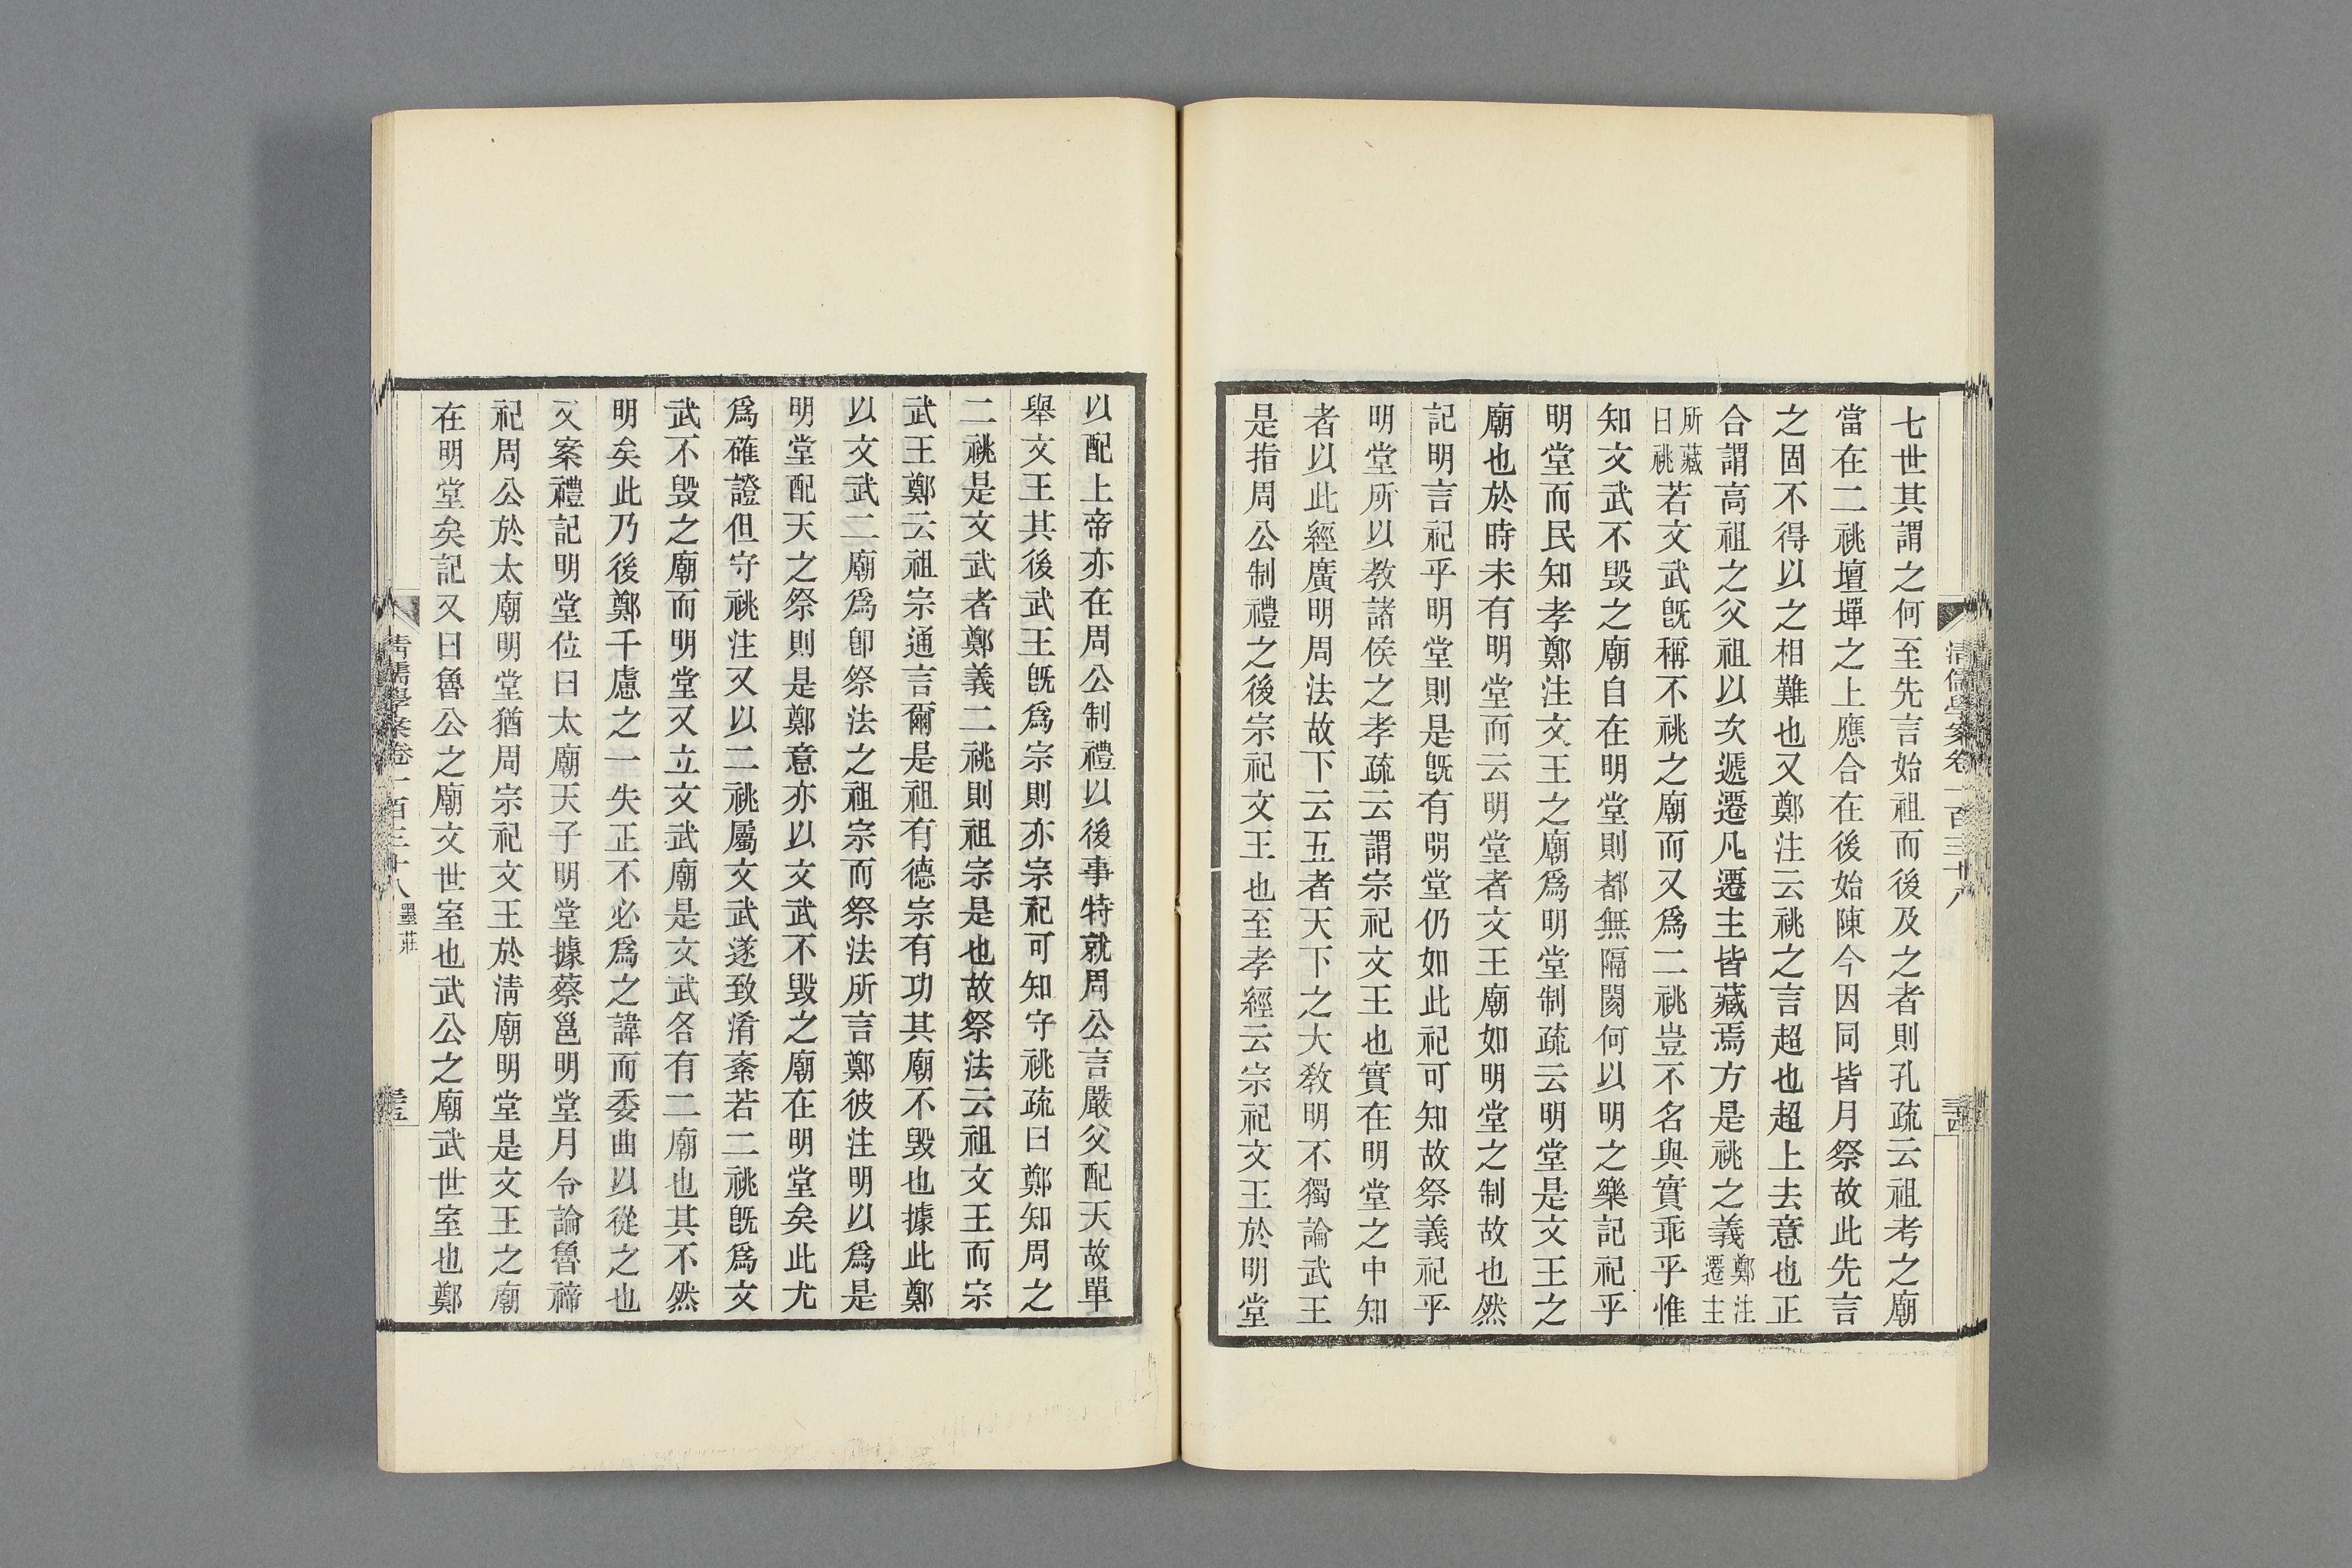 七世其謂之何至先言始祖而後及之者則孔疏云祖考之廟
當在二祧壇墠之上應合在後始陳今因同皆月祭故此先言
之固不得以之相難也又鄭注云祧之言超也超上去意也正
合謂高祖之父祖以次遞遷凡遷主皆藏焉方是祧之義鄭注遷主
所藏曰祧若文武旣稱不祧之廟而又爲二祧豈不名與實乖乎惟
知文武不毀之廟自在明堂則都無隔閡何以明之樂記祀乎
明堂而民知孝鄭注文王之廟爲明堂制疏云明堂是文王之
廟也於時未有明堂而云明堂者文王廟如明堂之制故也然
記明言祀乎明堂則是旣有明堂仍如此祀可知故祭義祀乎
明堂所以教諸侯之孝疏云謂宗祀文王也實在明堂之中知
者以此經廣明周法故下云五者天下之大敎明不獨論武王
是指周公制禮之後宗祀文王也至孝經云宗祀文王於明堂
清儒學案卷一百三十八
三十四
以配上帝亦在周公制禮以後事特就周公言嚴父配天故單
舉文王其後武王旣爲宗則亦宗祀可知守祧疏曰鄭知周之
二祧是文武者鄭義二祧則祖宗是也故祭法云祖文王而宗
武王鄭云祖宗通言爾是祖有德宗有功其廟不毀也據此鄭
以文武二廟爲卽祭法之祖宗而祭法所言鄭彼注明以爲是
明堂配天之祭則是鄭意亦以文武不毀之廟在明堂矣此尤
爲確證但守祧注又以二祧屬文武遂致淆紊若二祧旣爲文
武不毀之廟而明堂又立文武廟是文武各有二廟也其不然
明矣此乃後鄭千慮之一失正不必爲之諱而委曲以從之也
又案禮記明堂位曰太廟天子明堂據蔡邕明堂月令論魯禘
祀周公於太廟明堂猶周宗祀文王於清廟明堂是文王之廟
在明堂矣記又曰魯公之廟文世室也武公之廟武世室也鄭
清儒學案卷一百三十八 墨莊
三十五